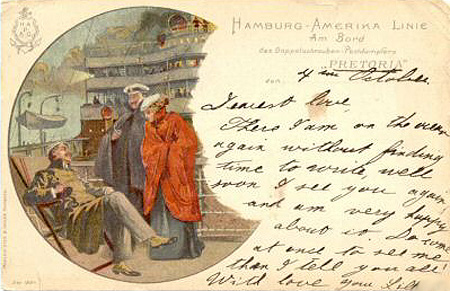 HAMBURG-AMERIKA LINIE
Am Bord
des Doppelschrauben-Postdampfers
"PRETORIA"
den 4 ten October
Dearest love,
Thers I am on the ocean
again without finding
time to write, well
soon I see you again
and am very happy
about it. Do come
at once to see me
than I tell you all!
With love your